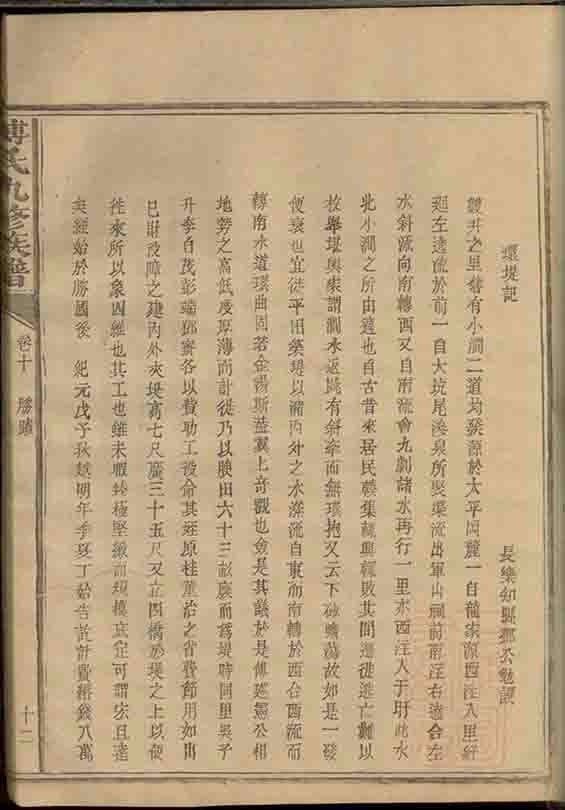 環堤記
長樂知縣鄧公勉譔
雙井之里舊有小澗二道均發源於大平岡麓一自龍家源西注入里紆
廻左遶流於前一自大坑尾湊泉所聚渠流出軍山祠前南注右遶合左
水斜流向南轉西又自南流會九劇諸水再行一里水西注入于盱此水
此小澗之所由遶也自古昔來居民蕃集輒興輒敗其間遷徙逃亡難以
枚舉堪輿家謂澗水返跳有斜牽而無環抱又云下砂曠蕩故如是一發
便衰也宜從平田築堤以瀦內外之水灘流自東而南轉於西合西流而
轉南水道環曲固若金湯斯益冀上奇觀也僉是其議於是傅延靈公相
地勢之高低度厚薄而計從乃以腴田六十三畝廢而為堤時同里吳予
升李自茂彭端鄧賓各以費助工設命其姪原桂董治之省費節用如出
己財役障之建內外夾堤高七尺廣三十五尺又立四橋於堤之上以便
往來所以象四維也其工也雖未暇終極堅緻而規模直定可謂宏且遠
矣經始於勝國後 紀元戊子秋越明年季夏丁始告訖計費緡錢八萬
傅氏九修族譜
卷十 勝蹟
十二